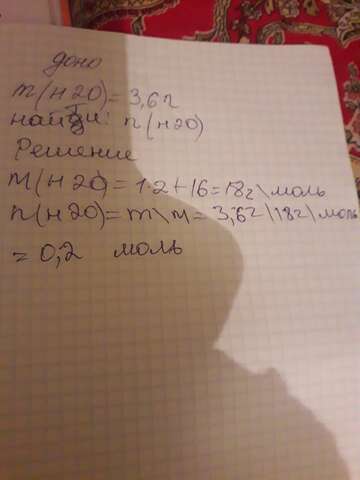 доно
m(н20)=3,6г
найти: n(н20)
Решение
М(н20)=1·2+16=18г\моль
n(н20)=m\м=3,6г\18г\моль
=0,2 моль